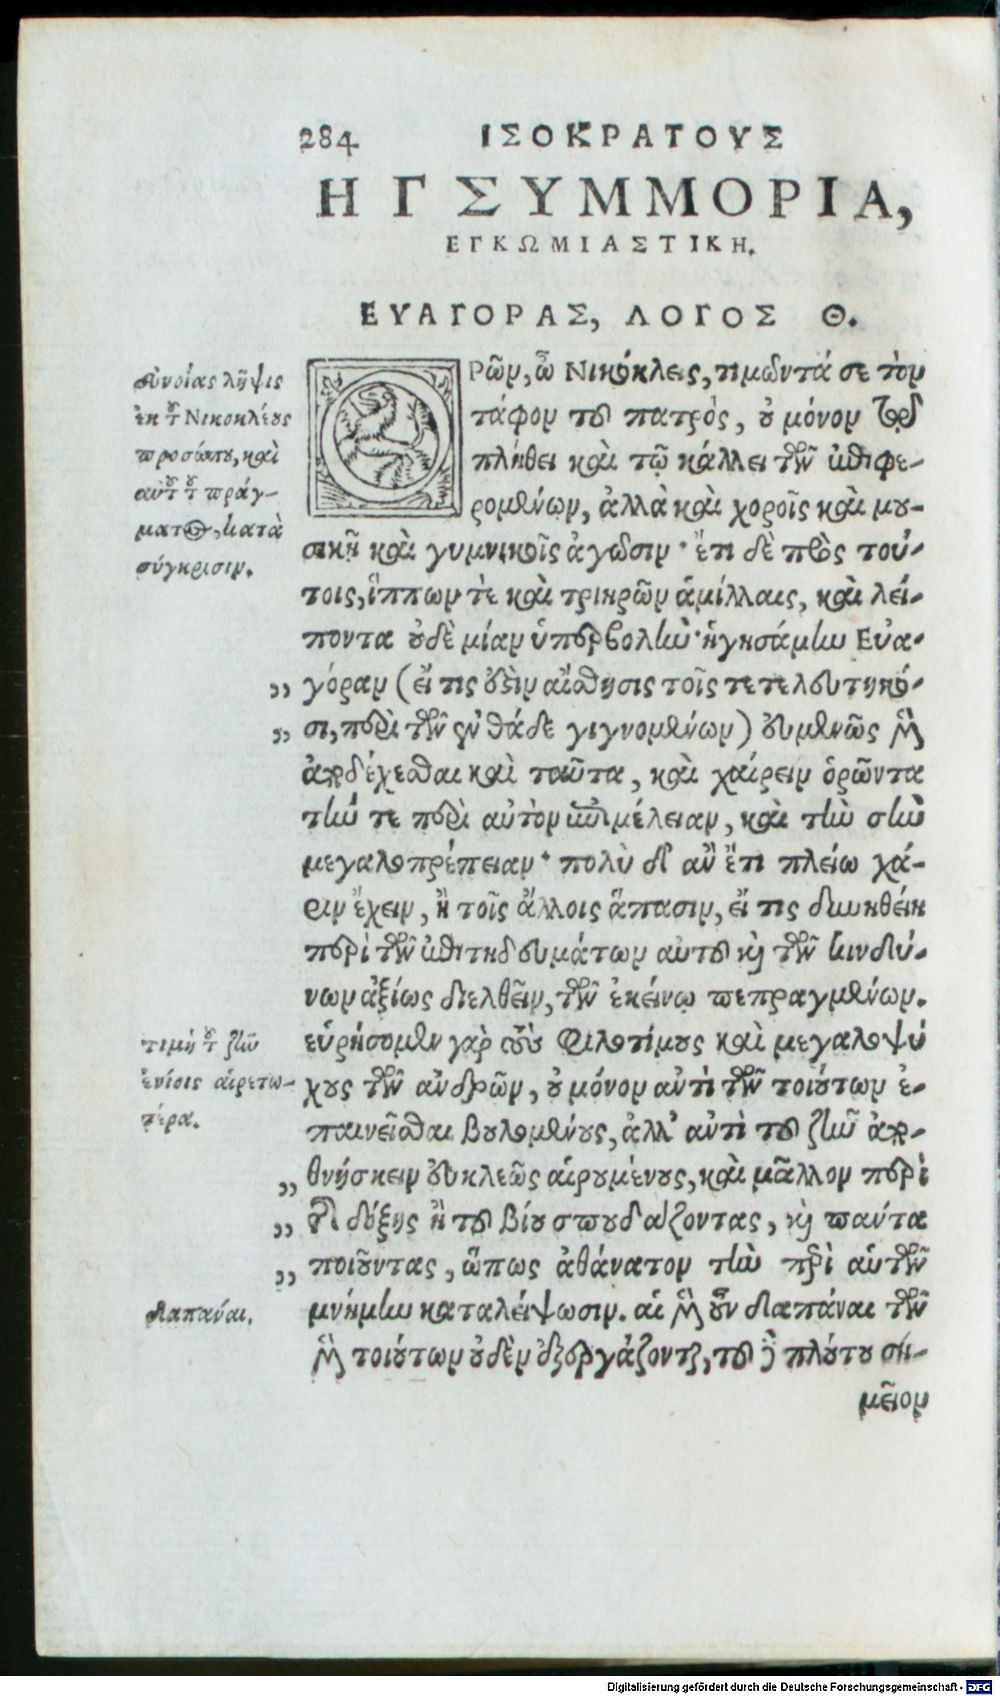 284 ΙΣΟΚΡΑΤΟΥΣ
Η Γ ΣΥΜΜΟΡΙΑ,
ΕΓΚΩΜΙΑΣΤΙΚΗ.
ΕΥΑΓΟΡΑΣ, ΛΟΓΟΣ Θ.
ΟΡῶν, ὦ Νικόκλεις, τιμῶντά σε τὸν
τάφον τοῦ πατρὸς, οὐ μόνον τῷ
πλήθει καὶ τῷ κάλλει τῶν ἐπιφε-
ρομένων, ἀλλὰ καὶ χοροῖς καὶ μου-
σικῇ καὶ γυμνικοῖς ἀγῶσιν· ἔτι δὲ πρὸς τού-
τοις, ἵππων τὲ καὶ τριηρῶν ἁμίλλαις, καὶ λεί-
ποντα οὐδὲ μίαν ὑπερβολὴν· ἡγησάμην Εὐα-
„ γόραν (εἴ τις ὅξὶν αἴσθησις τοῖς τετελευτηκό-
„ σι, περὶ τῶν ἐνθάδε γιγνομένων) εὐμενῶς μὲν
ἀποδέχεσθαι καὶ ταῦτα, καὶ χαίρειν ὁρῶντα
τήν τε περὶ αὐτὸν ἐπιμέλειαν, καὶ τὴν σὴν
μεγαλοπρέπειαν· πολὺ δ' ἂν ἔτι πλείω χά-
ριν ἔχειν, ἢ τοῖς ἄλλοις ἅπασιν, εἴ τις δυνηθείη
περὶ τῶν ἐπιτηδευμάτων αὐτοῦ καὶ τῶν κινδύ-
νων ἀξίως διελθεῖν, τῶν ἐκείνῳ πεπραγμένων.
εὑρήσομεν γὰρ τοὺς φιλοτίμους καὶ μεγαλοψύ
χους τῶν ἀνδρῶν, οὐ μόνον ἀντὶ τῶν τοιούτων ἐ-
παινεῖσθαι βουλομένους, ἀλλ' ἀντὶ τοῦ ζῆν ἀπο-
„ θνήσκειν εὐκλεῶς αἱρουμένους, καὶ μᾶλλον περὶ
„ τῆς δόξης ἢ τοῦ βίου σπουδάζοντας, καὶ πάντα
„ ποιοῦντας, ὅπως ἀθάνατον τὴν περὶ αὑτῶν
μνήμην καταλείψωσιν. αἱ μὲν οὖν δαπάναι τῶν
μὲν τοιούτων οὐδὲν ἐξεργάζονται, τοῦ δὲ πλούτου ση-
μεῖον
εὐνοίας λῆψις
ἐκ τοῦ Νικοκλέους
προσώπου, καὶ
αὐτοῦ τοῦ πράγ-
ματος, κατὰ
σύγκρισιν.
τιμὴ τοῦ ζῆν
ἐνίοις αἱρετω-
τέρα.
δαπάναι.
Digitalisierung gefördert durch die Deutsche Forschungsgemeinschaft - DFG